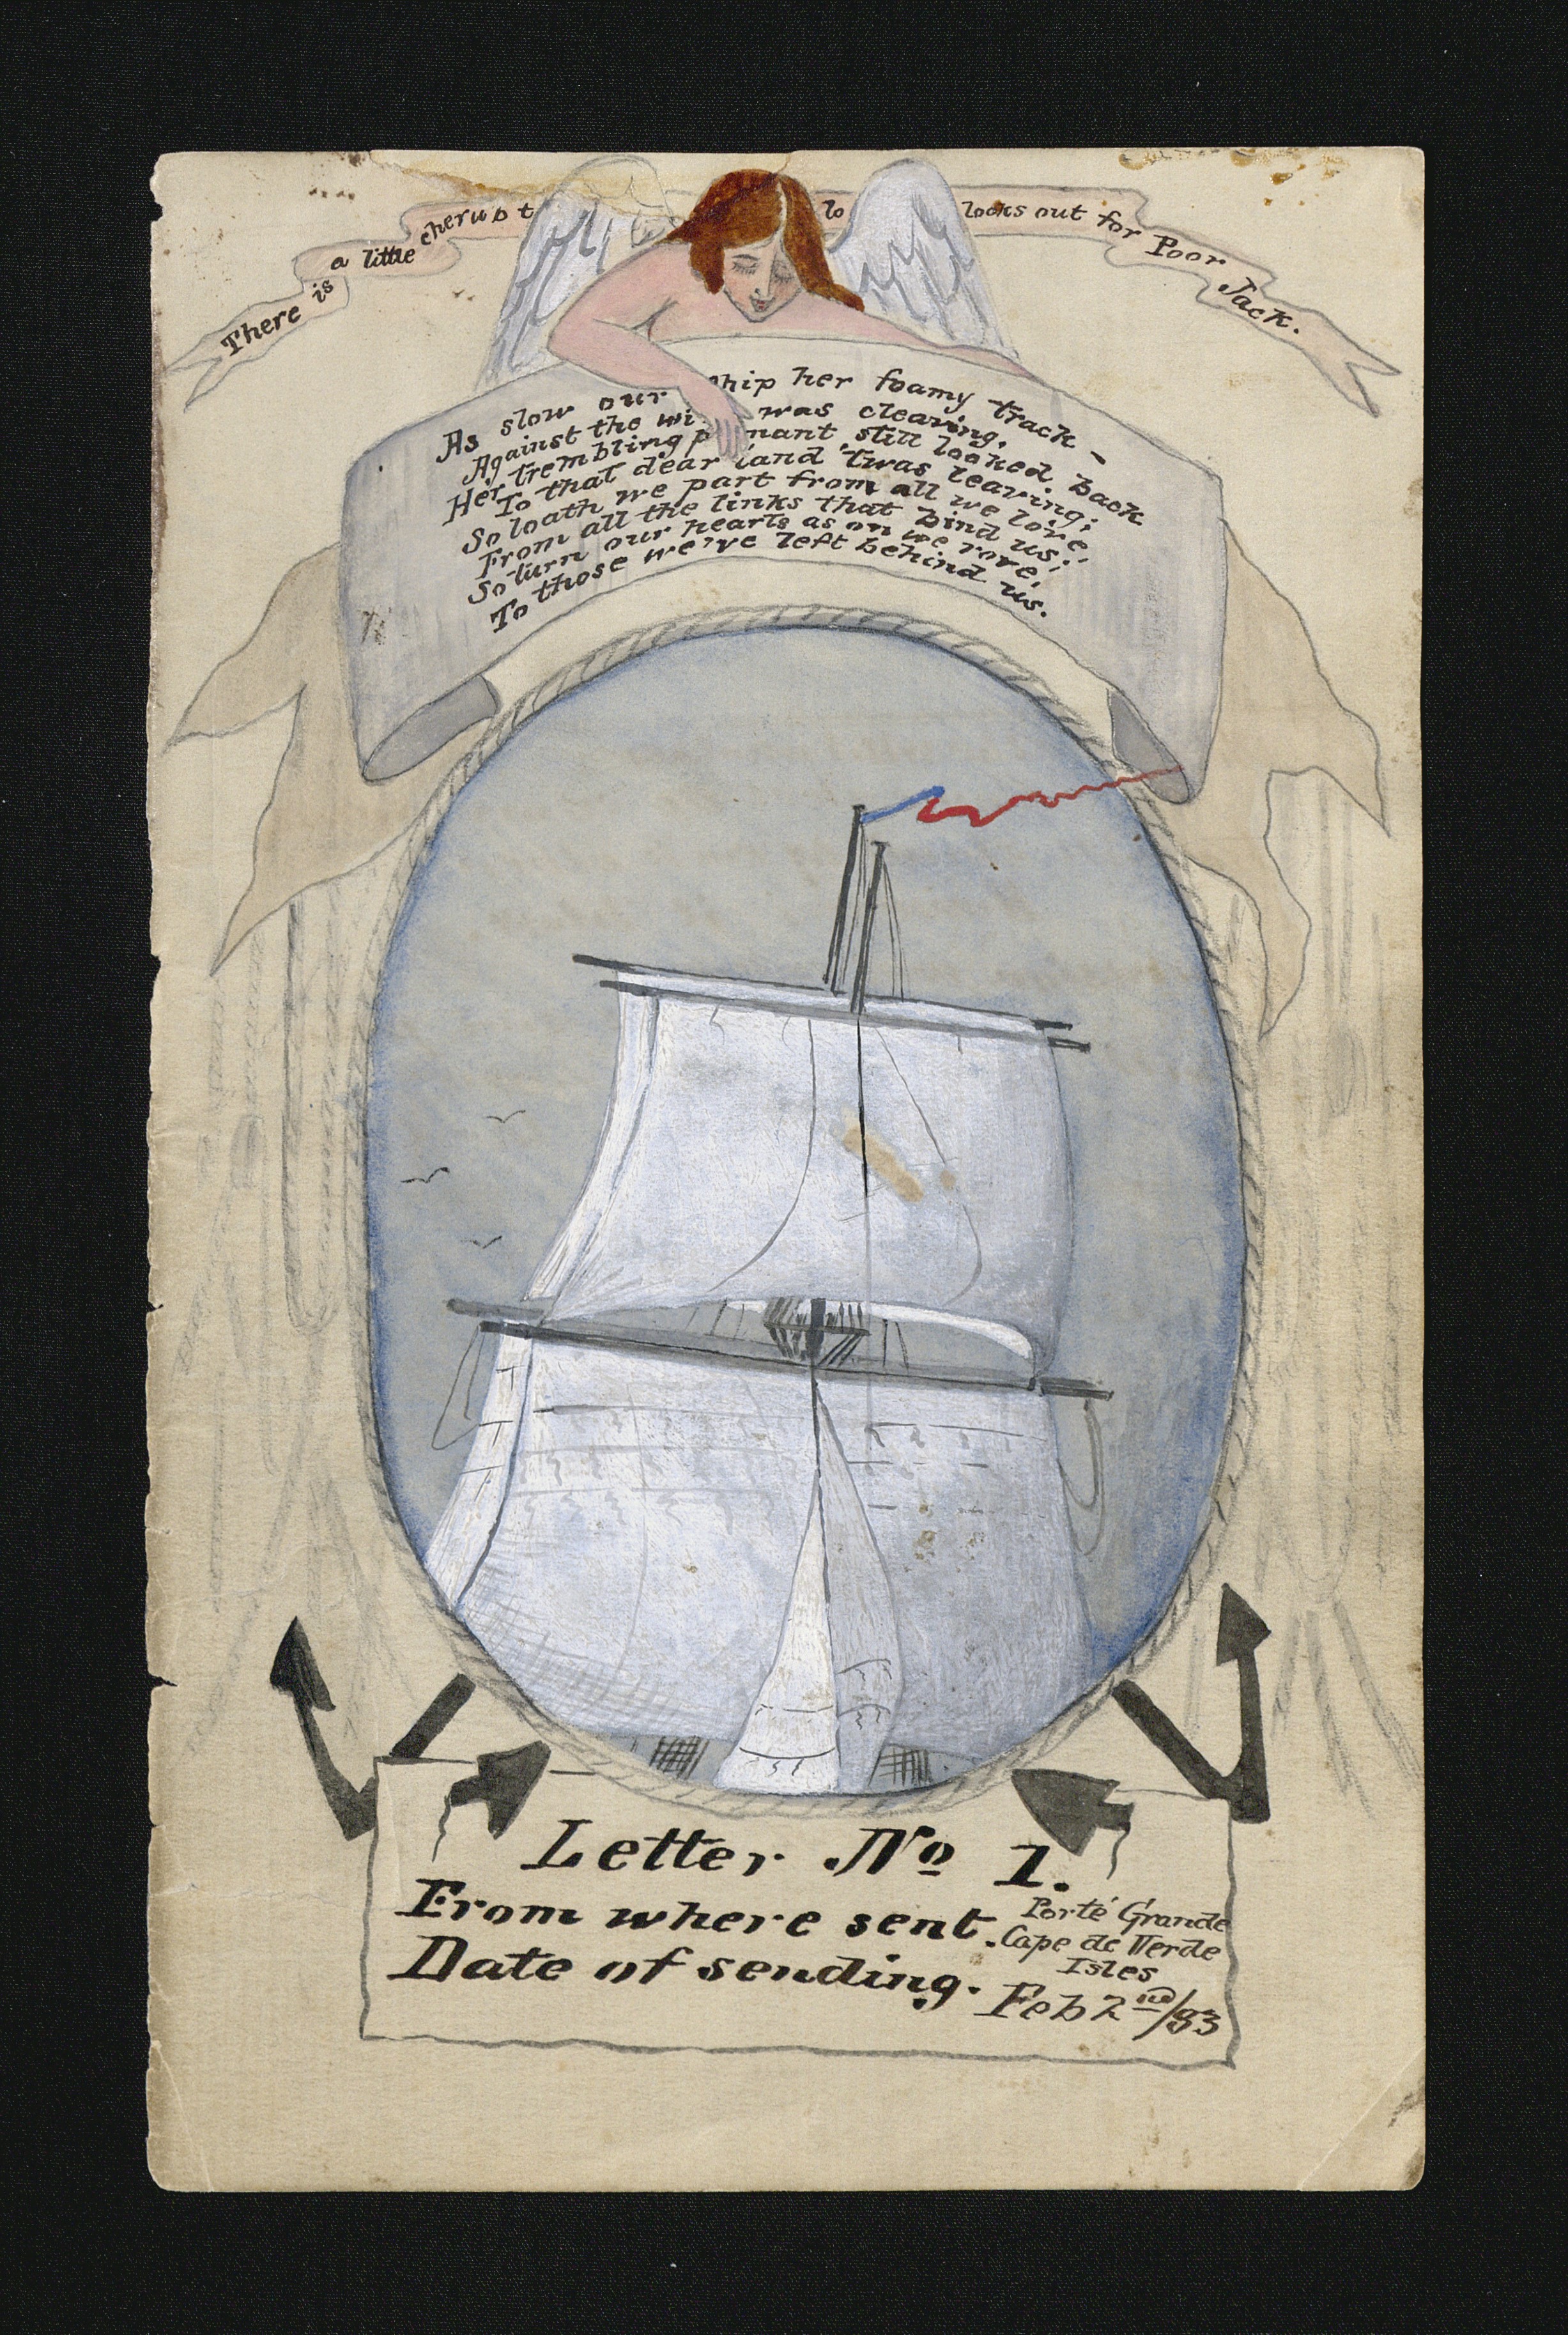 There is a little cherub t lo looks out for Poor Jack.
As slow our ship her foamy track -
Against the wi was cleaving,
Her trembling p nnant still looked back
To that dear land 'twas leaving;
So loath we part from all we love
From all the links that bind us;
So turn our hearts as on we rove,
To those we've left behind us.
Letter No 1.
From where sent. Porté Grande
Cape de Verde
Isles
Date of sending. Feb 2nd/93